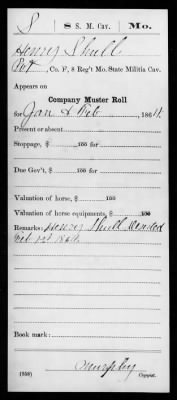 S 8 S. M. Cav. Mo.
Henry Shull
Pvt, Co. F, 8 Reg't Mo. State Militia Cav.
Appears on
Company Muster Roll
for Jan & Feb, 1864.
Present or absent
Stoppage, $ 100 for
Due Gov't, $ 100 for
Valuation of horse, $ 100
Valuation of horse equipments, $ 100
Remarks: Henry Shull
Feb 1864.
Book mark:
(358) Murphy
Copyist.